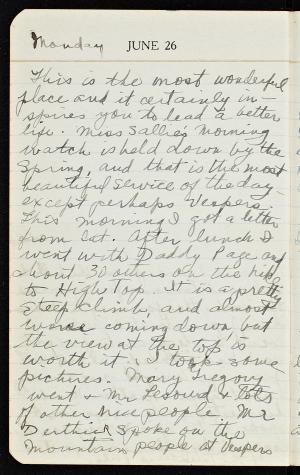 Monday JUNE 26
This is the most wonderful
place and it certainly in-
spires you to lead a better
life. Miss Sallie's Morning
Watch is held down by the
Spring, and that is the most
beautiful service of the day
except perhaps Vespers.
This morning I got a letter
from Cat. After lunch I
went with Daddy Page and
about 30 others on the hike
to High Top. It is a pretty
steep climb, and almost
worse coming down but
the view at the top is
worth it. I took some
pictures. Mary Gregory
went & Mr & lots
of other nice people. Mr
spoke on the
Mountain people at Vespers